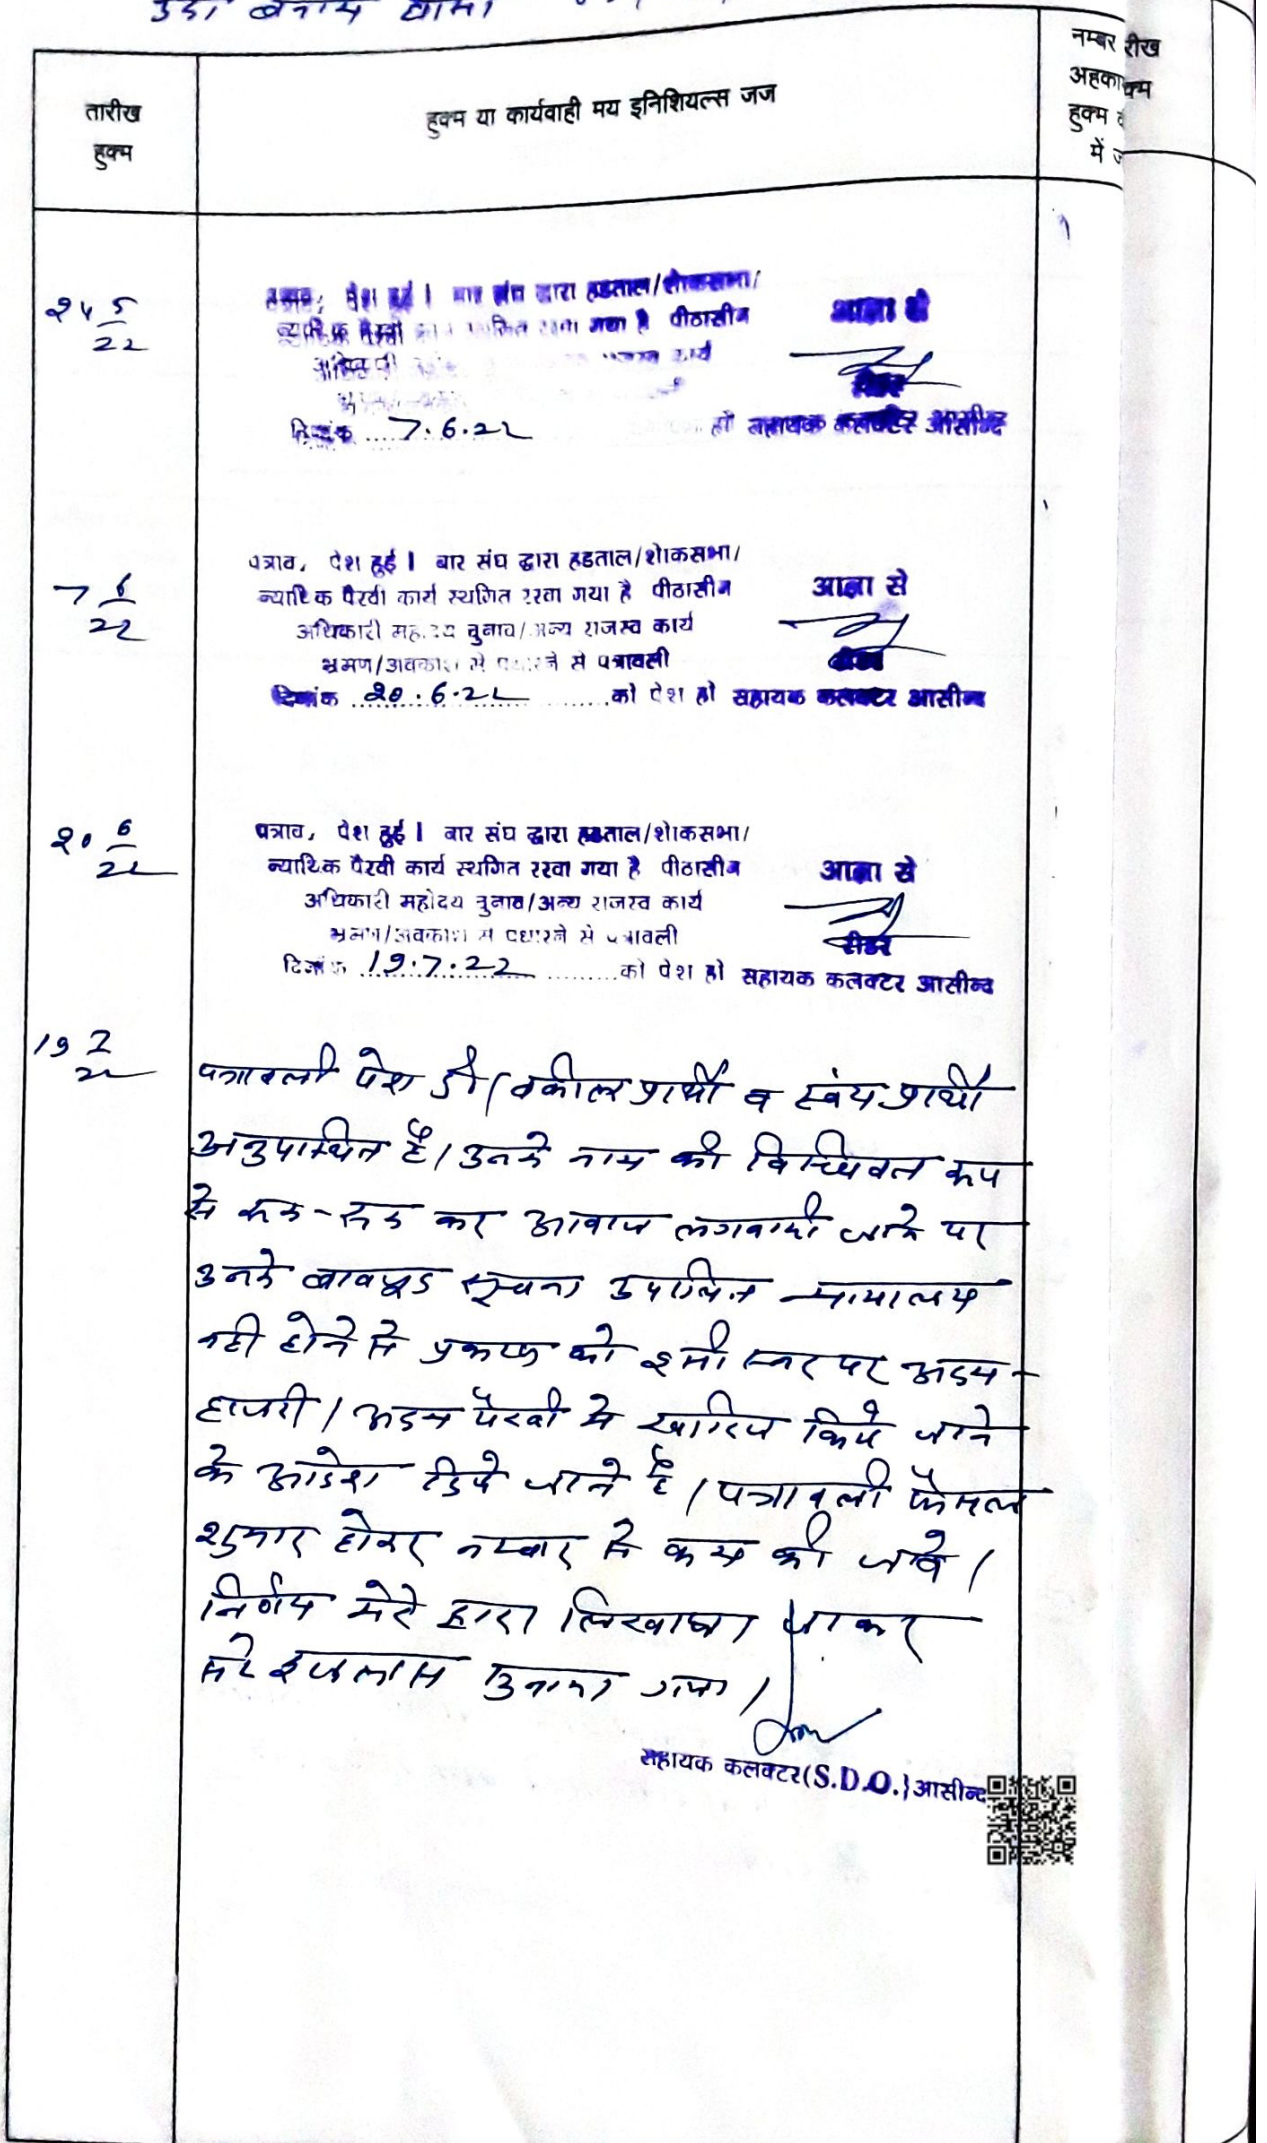 बनाम
तारीख
हुक्म
हुक्म या कार्यवाही मय इनिशियल्स जज
नम्बर रीख
अहका क्म
हुक्म
में ज
24 5/22
पेश हुई । बार संघ द्वारा हडताल/शोकसभा/
न्यायिक पैरवी गया है पीठासीन
राजस्व कार्य
दिनांक 7.6.22
हो सहायक कलक्टर आसीन्द
आज्ञा से
रीडर
7 6/22
पत्राव, पेश हुई । बार संघ द्वारा हडताल/शोकसभा/
न्यायिक पैरवी कार्य स्थगित रखा गया है पीठासीन
अधिकारी महोदय चुनाव/अन्य राजस्व कार्य
भ्रमण/अवकाश में पधारने से पत्रावली
दिनांक 20.6.22 को पेश हो सहायक कलक्टर आसीन्द
आज्ञा से
रीडर
20 6/22
पत्राव, पेश हुई । बार संघ द्वारा हडताल/शोकसभा/
न्यायिक पैरवी कार्य स्थगित रखा गया है पीठासीन
अधिकारी महोदय चुनाव/अन्य राजस्व कार्य
भ्रमण/अवकाश में पधारने से पत्रावली
दिनांक 19.7.22 को पेश हो सहायक कलक्टर आसीन्द
आज्ञा से
रीडर
19 7/22
पत्रावली पेश हुई। वकील प्रार्थी व स्वंय प्रार्थी
अनुपस्थित है। उनके नाम की विधिवत रूप
से रूक-रूक कर आवाज लगवायी जाने पर
उनके बावजूद सूचना उपस्थित न्यायालय
नही होने से प्रकरण को इसी स्तर पर अदम
हाजरी/अदम पैरवी मे खारिज किये जाने
के आदेश दिये जाते है। पत्रावली फैसल
शुमार होकर नम्बर से कम की जावे।
निर्णय मेरे द्वारा लिखाया जाकर
सरे इजलास सुनाया गया।
सहायक कलक्टर(S.D.O.)आसीन्द